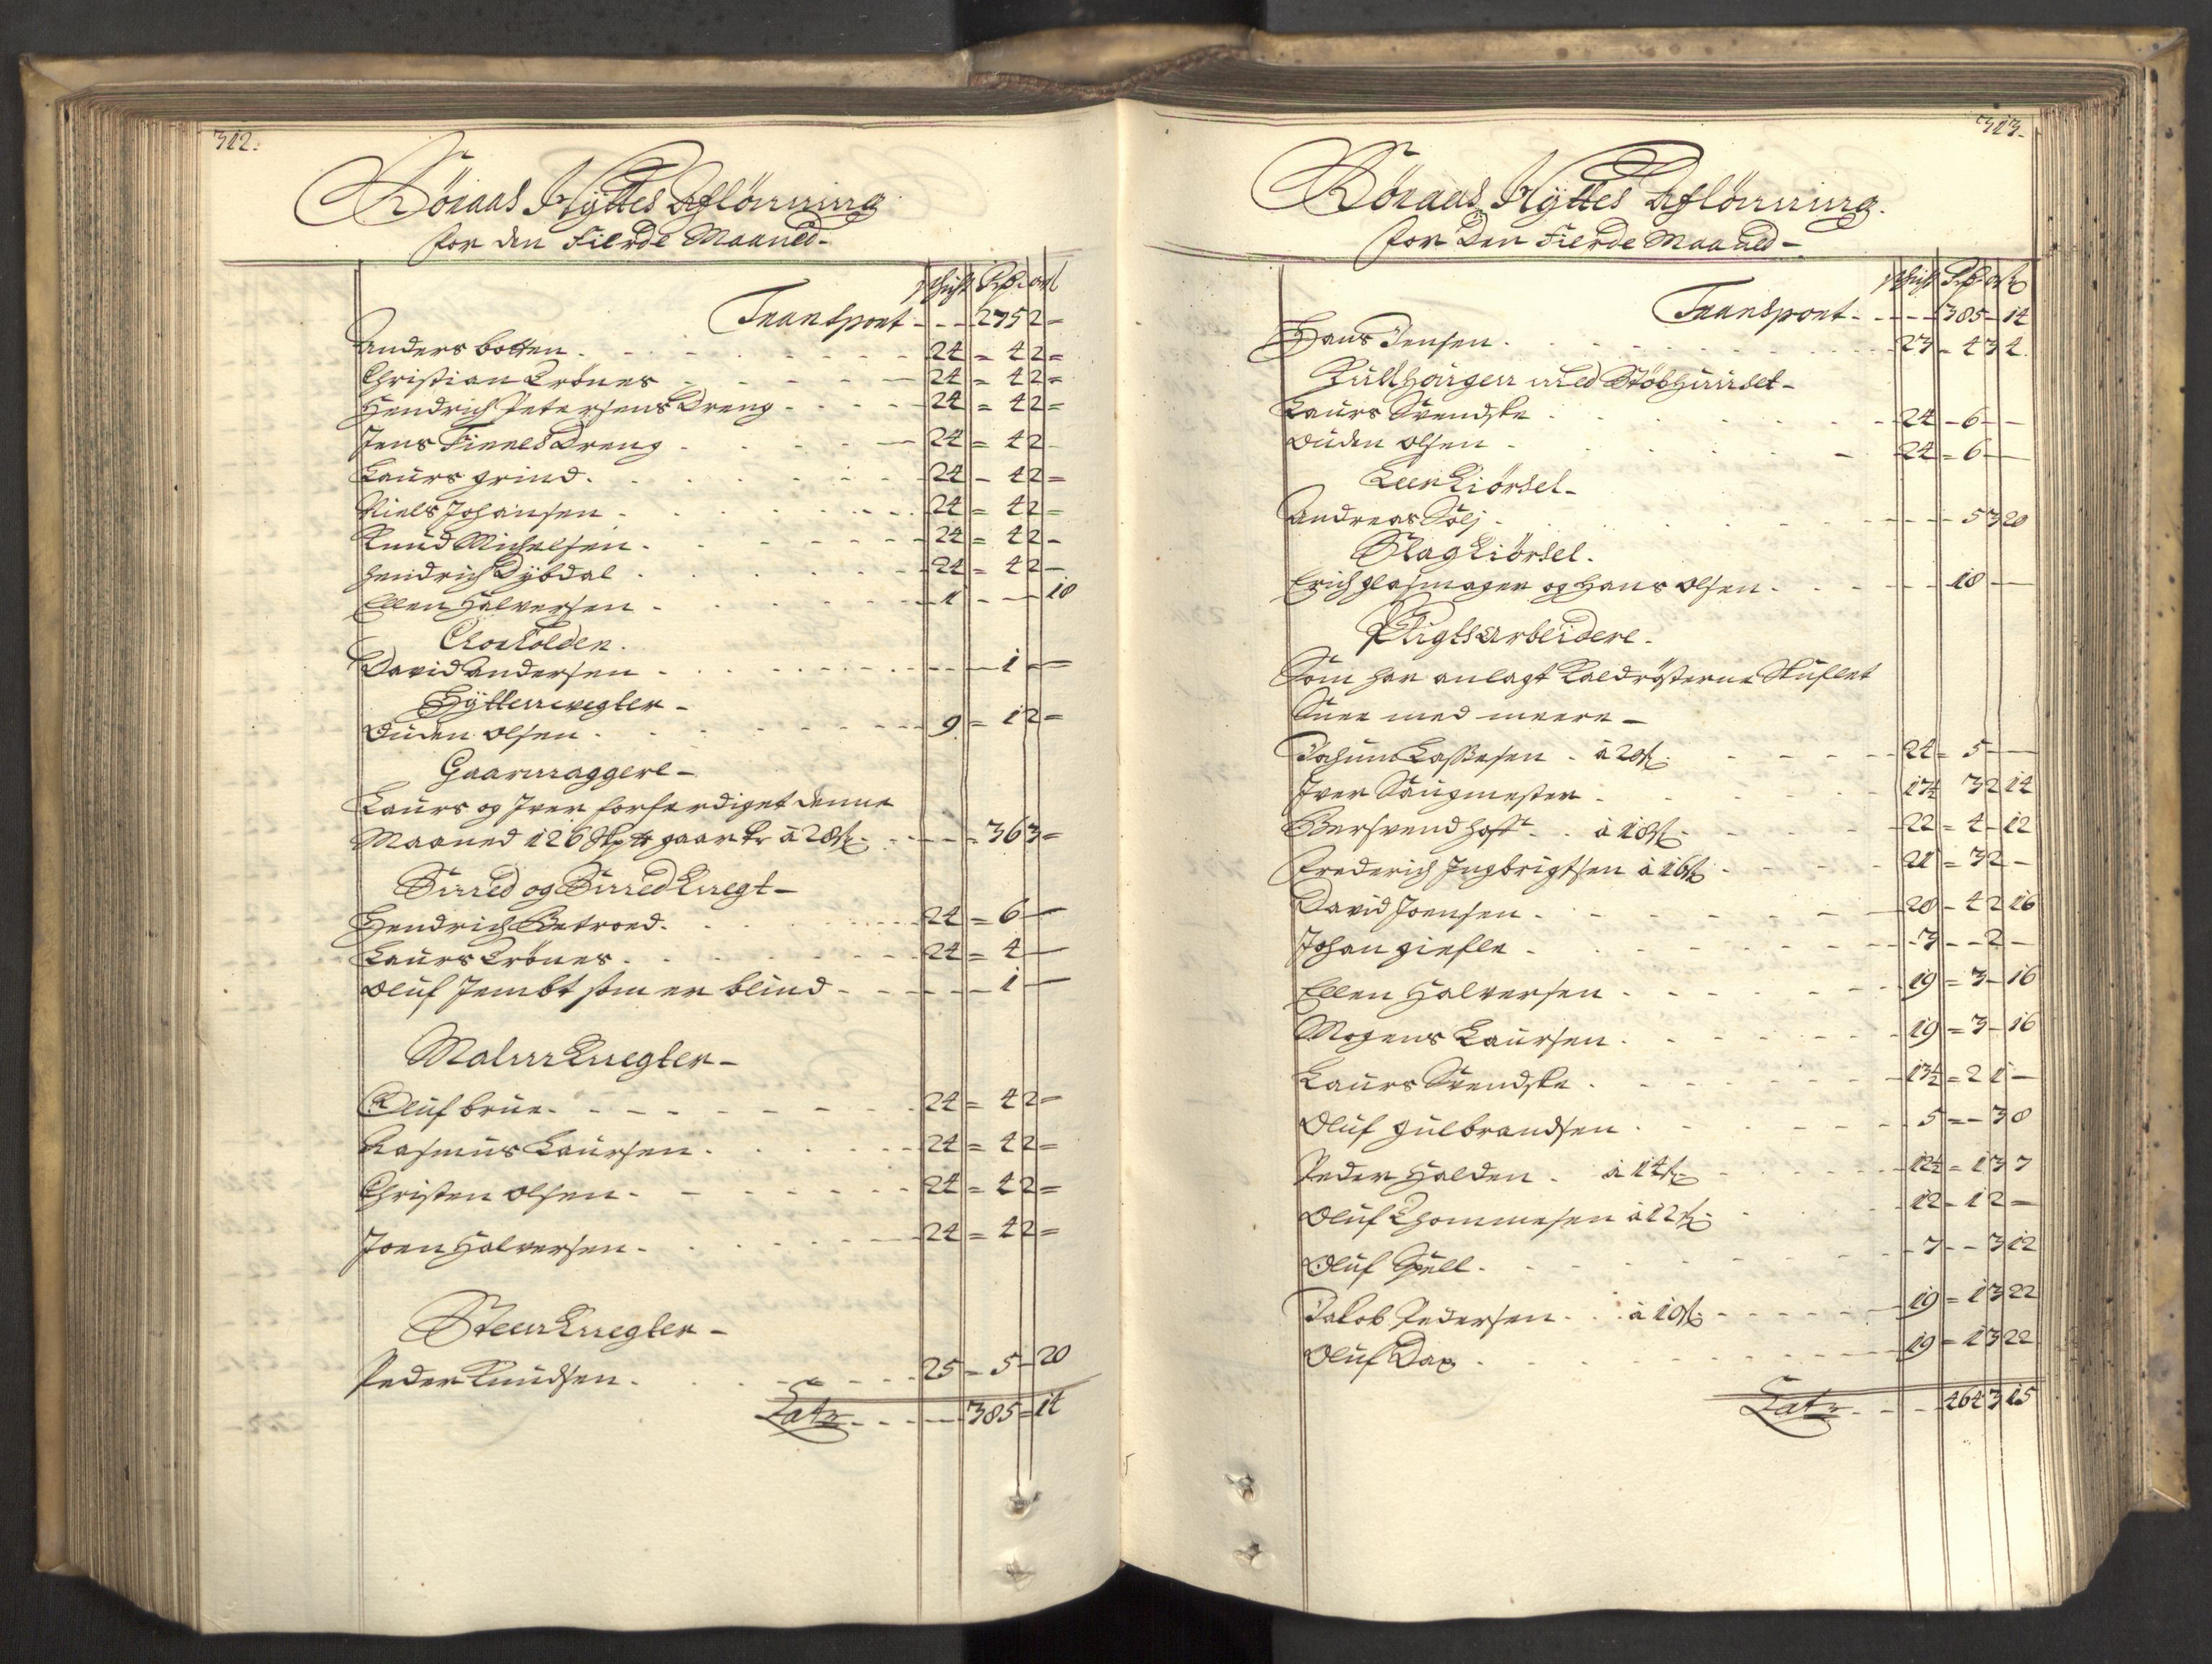 312.
Röraas Hÿttes Aflönning
for den Fierde Maaned-
schift Rdr ort
Transport - - - 275 2 =
Anders botten. 24 = 4 2 =
Christian Trönes 24 = 4 2 =
Hendrich Petersens Dreng. 24 = 4 2 =
Jens Finnes Dreng 24 = 4 2
Laurs grind. 24 - 4 2 =
Niels Johansen. 24 = 4 2 =
Knud Michelsen. 24 = 4 2 -
Hendrich Dybdal 24 = 4 2 -
Ellen Halversen. 1 - - - 18
David Andersen. - - - 1 - =
Hÿttewegter-
Auden Olsen. 9 = 1 2 =
Gaarmaggere-
Laurs og Iver forferdiget denne
Maaned 126 gaar kr à 28 s. 36 3 =
Smed og Smed Knegt-
Hendrich Betroed. 24 = 6 -
Laurs Trönes. 24 = 4 -
Oluf Jembt som er blind - - - 1 -
Malm Knegter-
Oluf brue. 24 = 4 2 =
Rasmus Laursen. 24 = 4 2 =
Christen Olsen. 24 = 4 2 =
Joen Halversen. 24 = 4 2 =
Steen Knegter-
Peder Knudsen. 25 - 5 - 20
Latr - - - 385 = 14
313.
Röraas Hÿttes Aflönning.
for Den Fierde Maaned-
schift Rdr ort s
Transport - - - 385 - 14
Hans Jensen. 23 - 4 3 4.
Kullhörgen med Stöbhuuset-
Laurs Svendske. 24 - 6 - -
Auden Olsen - 24 = 6 -
Leer Kiörsel-
Andreas Sölj. - - - 5 3 20
Slag Kiörsel.
Erich glasmager og Hans Olsen. - - 18 -
Pligts Arbeidere.
Som har anlagt Kaldrösterne Skuflet
Snee med meere-
Jochum Lassesen. à 20 s. 24 = 5 -
Iver Saugmester. 17½ 3 2 14
Bersvend Hoft. à 18 s. 22 = 4 - 12
Frederich Ingbrigtsen à 16 s. 21 = 3 2 -
David Joensen. 28 - 4 2 16
Johan giefle - 3 - - 2 -
Ellen Halversen. 19 = 3 - 16
Mogens Laursen. 19 = 3 - 16
Laurs Svendske. 13½ = 2 1 -
Oluf gulbrandsen. 5 = - 3 8
Peder Halden. à 14 s. 12½ = 1 3 7
Oluf Thommesen à 12 s. 12 - 1 2 =
Oluf Spell. 7 - - 3 12
Jakob Pedersen. à 10 s. 19 = 1 3 22
Oluf Dax. 19 = 1 3 22
Latr - - - 464 3 15